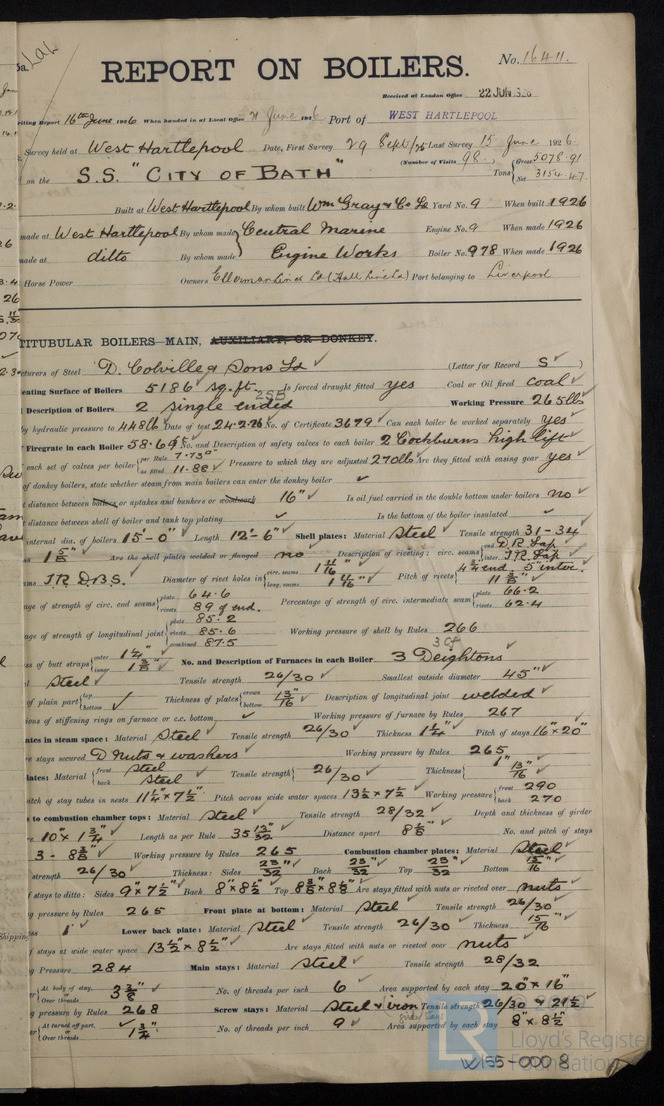 REPORT ON BOILERS.
No. 16411.
Received at London Office 22 JUN 1926
Writing Report 16th June 1926 When handed in at Local Office 21 June 1926 Port of WEST HARTLEPOOL
Survey held at West Hartlepool Date, First Survey 29 Sept/25 Last Survey 15 June 1926.
(Number of Visits 98.)
on the S.S. "CITY OF BATH" Tons { Gross 5078.91 Net 3154.47
Built at West Hartlepool By whom built Wm Gray & Co Ld Yard No. 9 When built 1926
made at West Hartlepool By whom made Central Marine Engine No. 9 When made 1926
made at ditto By whom made Engine Works Boiler No. 978 When made 1926
Horse Power Owners Ellerman Lines Ld (Hall Line Ld) Port belonging to Liverpool
TITUBULAR BOILERS MAIN, AUXILIARY, OR DONKEY.
cturers of Steel D. Colville & Sons Ld (Letter for Record S)
eating Surface of Boilers 5186 sq. ft. Is forced draught fitted yes Coal or Oil fired coal
Description of Boilers 2 single ended 2SB Working Pressure 265 lbs
by hydraulic pressure to 448 lb Date of test 24.2.26 No. of Certificate 3679 Can each boiler be worked separately yes
Firegrate in each Boiler 58.69 No. and Description of safety valves to each boiler 2 Cockburns high lift
each set of valves per boiler { per Rule 7.73 as fitted 11.88 Pressure to which they are adjusted 270 lb Are they fitted with easing gear yes
of donkey boilers, state whether steam from main boilers can enter the donkey boiler
t distance between boilers or uptakes and bunkers or woodwork 16" Is oil fuel carried in the double bottom under boilers no
distance between shell of boiler and tank top plating Is the bottom of the boiler insulated
internal dia. of boilers 15'-0" Length 12'-6" Shell plates: Material Steel Tensile strength 31-34
1 5/8" Are the shell plates welded or flanged no Description of riveting: circ. seams { end D.R. Lap inter. T.R. Lap
ms T.R. D.B.S. Diameter of rivet holes in { circ. seams 1 11/16" long. seams 1 11/16" Pitch of rivets { 4 1/4 end 5" inter. 11 3/8"
age of strength of circ. end seams { plate 64.6 rivets 89 of end. Percentage of strength of circ. intermediate seam { plate 66.2 rivets 62.4
age of strength of longitudinal joint { plate 85.2 rivets 85.6 combined 87.5 Working pressure of shell by Rules 266
ss of butt straps { outer 1 1/4" inner 1 3/8" No. and Description of Furnaces in each Boiler 3 Deightons
l Steel Tensile strength 26/30 Smallest outside diameter 45"
of plain part { top bottom Thickness of plates { crown 13/16" bottom Description of longitudinal joint welded
ions of stiffening rings on furnace or c.c. bottom Working pressure of furnace by Rules 267
ates in steam space: Material Steel Tensile strength 26/30 Thickness 1 1/4" Pitch of stays 16" x 20"
re stays secured D nuts & washers Working pressure by Rules 265
lates: Material { front Steel back Steel Tensile strength { 26/30 Thickness { 1" 13/16"
itch of stay tubes in nests 11 1/4" x 7 1/2" Pitch across wide water spaces 13 1/2 x 7 1/2 Working pressure { front 290 back 270
to combustion chamber tops: Material Steel Tensile strength 28/32 Depth and thickness of girder
re 10" x 1 3/4" Length as per Rule 35 13/32 Distance apart 8 5/8" No. and pitch of stays
3 - 8 3/8" Working pressure by Rules 265 Combustion chamber plates: Material Steel
strength 26/30 Thickness: Sides 23/32" Back 23/32" Top 23/32" Bottom 15/16"
f stays to ditto: Sides 9" x 7 1/2" Back 8" x 8 1/2" Top 8 3/8" x 8 5/8" Are stays fitted with nuts or riveted over nuts
g pressure by Rules 265 Front plate at bottom: Material Steel Tensile strength 26/30
ess 1" Lower back plate: Material Steel Tensile strength 26/30 Thickness 15/16"
f stays at wide water space 13 1/2" x 8 1/2" Are stays fitted with nuts or riveted over nuts
g Pressure 284 Main stays: Material Steel Tensile strength 28/32
er { At body of stay, or Over threads 3 3/8" No. of threads per inch 6 Area supported by each stay 20" x 16"
g pressure by Rules 268 Screw stays: Material Steel & iron Tensile strength 26/30 & 21 1/2
er { At turned off part, or Over threads 1 3/4" No. of threads per inch 9 Area supported by each stay 8" x 8 1/2"
LR
Lloyd's Register
Foundation
W155-0008